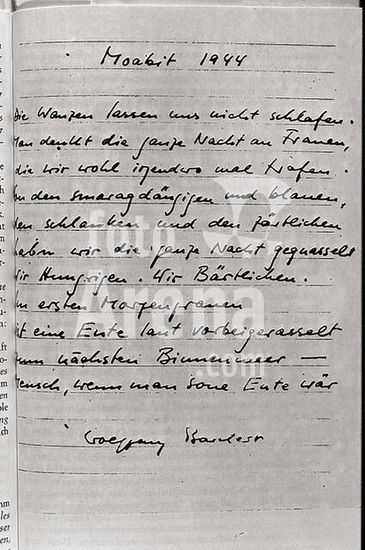 Moabit 1944
Die Wanzen lassen uns nicht schlafen.
Man denkt die ganze Nacht an Frauen,
die wir wohl irgendwo mal trafen.
den smaragdängigen und blauen,
den schlanken und den zärtlichen
haben wir die ganze Nacht gequasselt
Wir Hungrigen. Wir Bärtlichen.
im ersten Morgengrauen
ist eine Ente laut vorbeigerasselt
zum nächsten Binnenmeer —
Mensch, wenn man sone Ente wär
Wolfgang Borchert
foto
Arena
.com